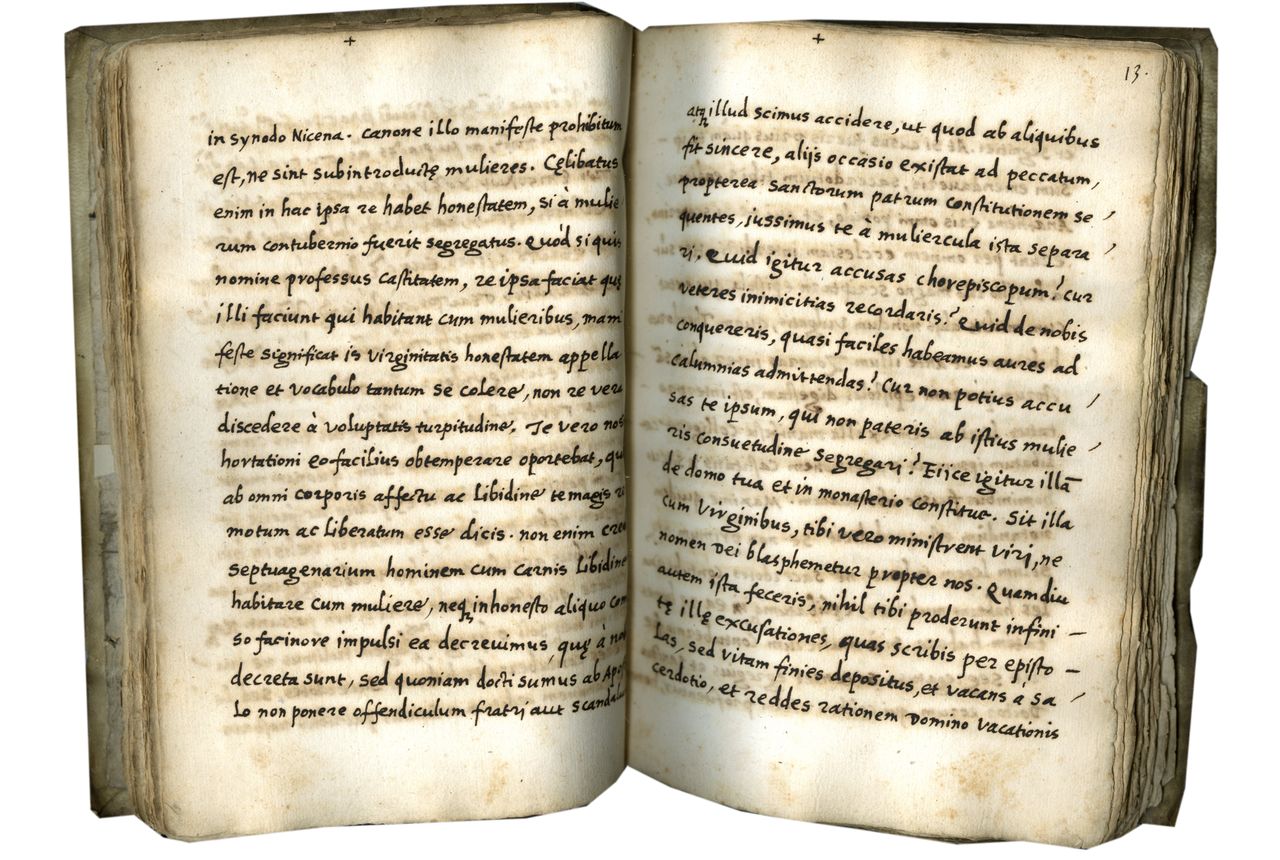 +
in Synodo Nicena. Canone illo manifeste prohibitum
est, ne sint subintroductę mulieres. Cęlibatus
enim in hac ipsa re habet honestatem, si à mulie
rum contubernio fuerit segregatus. Quòd si quis
nomine professus castitatem, re ipsa faciat quę
illi faciunt qui habitant cum mulieribus, mani
feste significat is virginitatis honestatem appella
tione et vocabulo tantum se colere, non re vera
discedere à voluptatis turpitudine. Te vero nos
hortationi eo facilius obtemperare oportebat, qu
ab omni corporis affectu ac libidine te magis re
motum ac liberatum esse dicis. non enim cre
septuagenarium hominem cum carnis libidine
habitare cum muliere, neqꝫ inhonesto aliquo com
so facinore impulsi ea decrevimus quę à no
decreta sunt, sed quoniam docti sumus ab Apos
lo non ponere offendiculum fratri aut scandalu
+
13.
atqꝫ illud scimus accidere, ut quod ab aliquibus
fit sincere, alijs occasio existat ad peccatum,
propterea Sanctorum patrum constitutionem se
quentes, jussimus te à muliercula ista separa
ri. Quid igitur accusas chorepiscopum? cur
veteres inimicitias recordaris? Quid de nobis
conquereris, quasi faciles habeamus aures ad
calumnias admittendas? Cur non potius accu
sas te ipsum, qui non pateris ab istius mulie
ris consuetudine segregari? Eijce igitur illā
de domo tua et in monasterio constitue. Sit illa
cum Virginibus, tibi vero ministrent viri, ne
nomen Dei blasphemetur propter nos. Quamdiu
autem ista feceris, nihil tibi proderunt infini –
tę illę excusationes, quas scribis per episto –
las, sed vitam finies depositus, et vacans a sa
cerdotio, et reddes rationem Domino vacationis